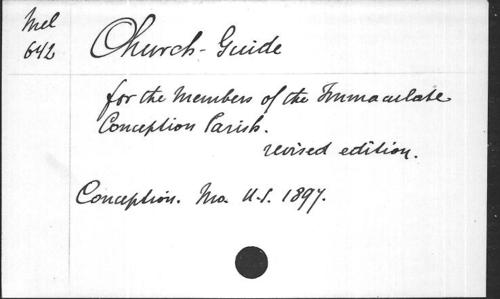 Mel
642
Church-Guide
for the Members of the Immaculate
Conception Parish.
revised edition.
Conception. Mo. U.S. 1897.